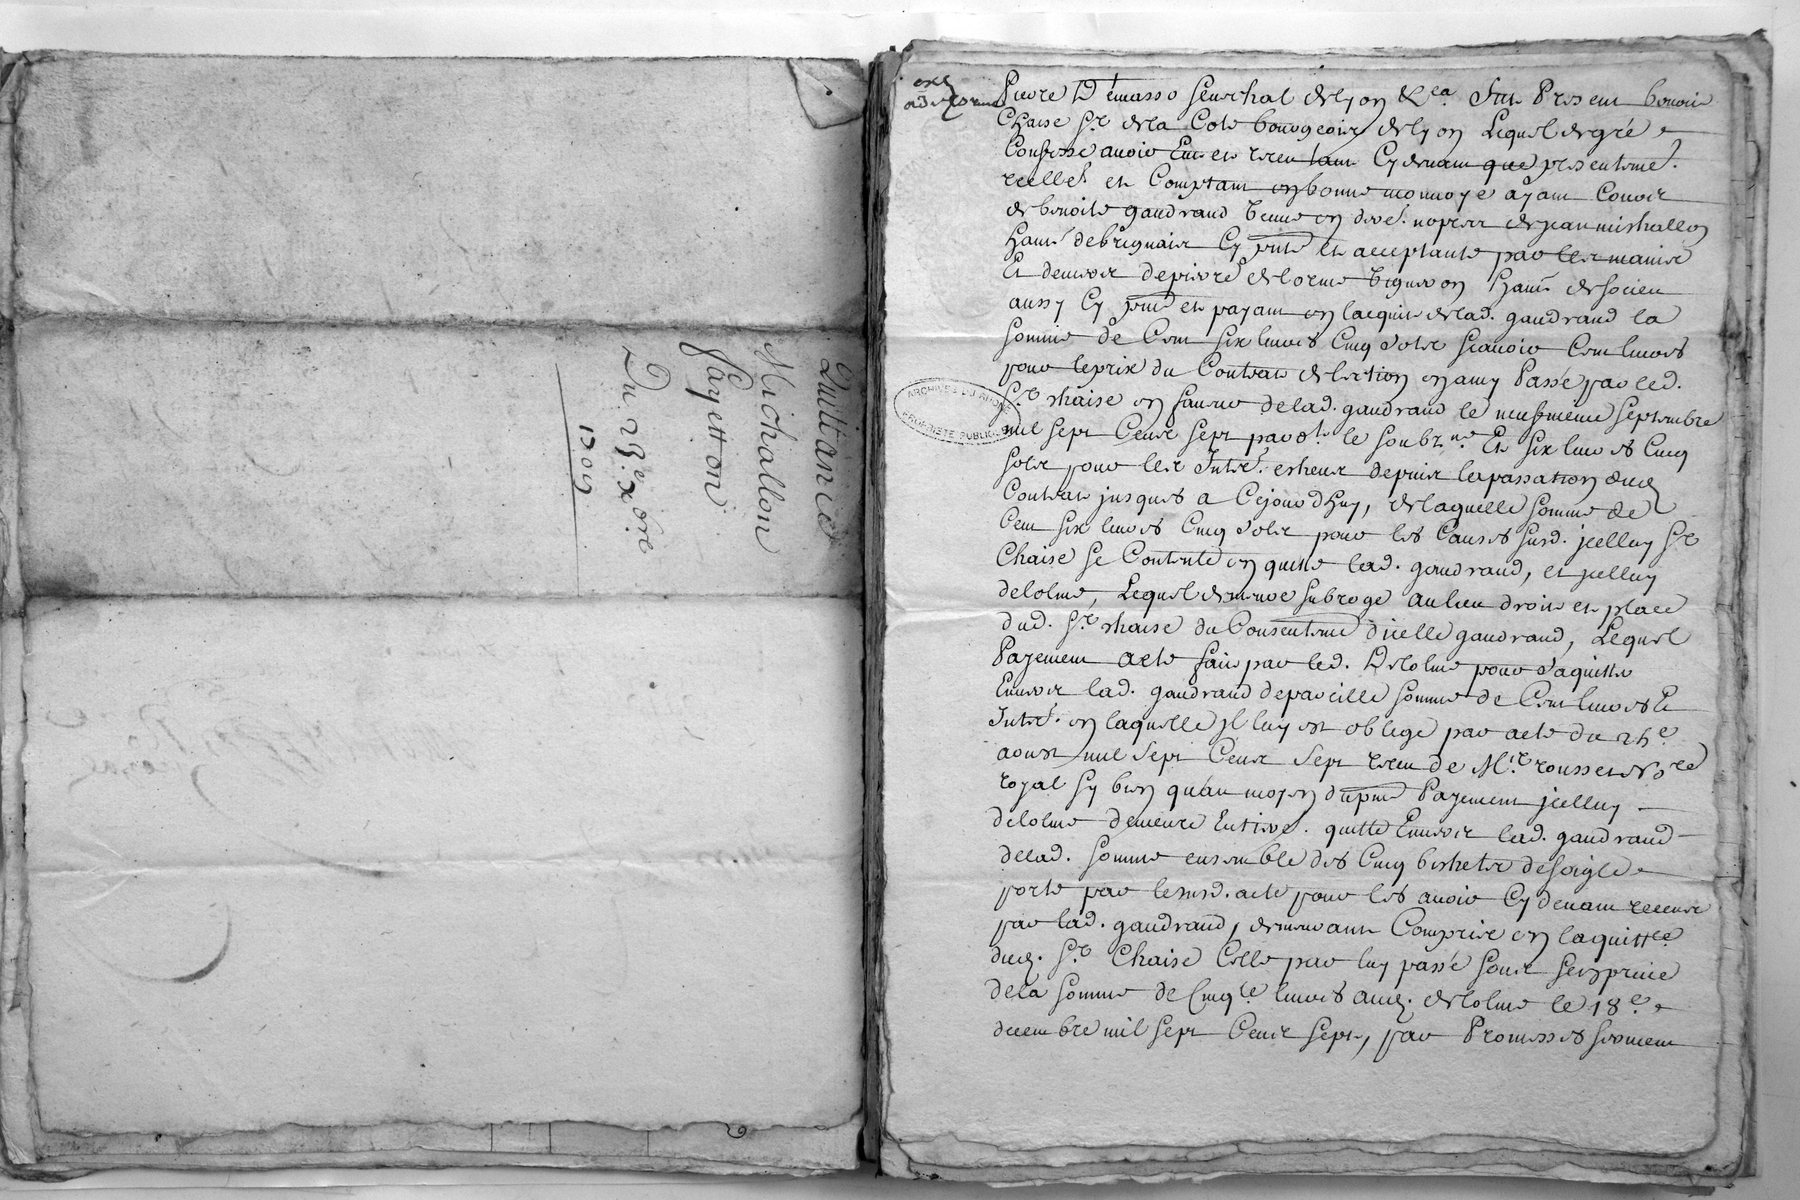 Quittance
Michallon
Payetton
Du 29.e xbre
1709
exp
a delorme
Pierre Demasso senechal de lyon &ca. Fut Present benoist
Chaise Sr. de la Cote bourgeois de lyon Lequel de gré
Confesse avoir Eu et receu tant Cy devant que presentemt.
reellet. et Comptant en bonne monnoye ayant Cours
de benoite gaudrand veuve en de nopces de jean mishallon
hant. de brignais Cy pnte et acceptante par les mains
Et deniers de pierre delorme vigneron hant. de socieu
aussy Cy pnt et payant en lacquit de lad. gaudrand la
somme de Cent six livres Cinq sols scavoir Cent livres
pour le prix du Contrat de en amy Passé par led.
Sr. chaise en faveur de lad. gaudrand le neufvieme septembre
mil sept Cents sept par dt. le soubz.né Et six livres Cinq
sols pour les Interests. escheus depuis la passation dud.
Contrat jusques a Cejourdhuy, de laquelle somme de
Cent six livres Cinq sols pour les Causes susd. jcelluy Sr.
Chaise se Contente en quitte lad. gaudrand, et jcelluy
delolme, Lequel demeure subrogé au lieu droit et place
dud. Sr. chaise du Consentemt dicelle gaudrand, Lequel
Payement a eté fait par led. Delolme pour saquitter
Envers lad. gaudrand de pareille somme de Cent livres Et
Interets. en laquelle jl luy est obligé par acte du 25e.
aoust mil sept Cents sept receu de Me. rousset Nore
royal sy bien quau moyen du pnt Payement jcelluy
delolme demeure Entieret. quitte Envers lad. gaudrand
de lad. somme ensemble des Cinq bichets de soigle
porté par le susd. acte pour les avoir Cy devant receus
par lad. gaudrand, demeurante Comprise en la quittce
dud. Sr. Chaise Celle par luy passé sous seing privé
de la somme de Cinqte. livres aud. delolme le 18e.
decembre mil sept Cents sept, par Promesses serment
ARCHIVES DU RHONE
PROPRIETE PUBLIQUE